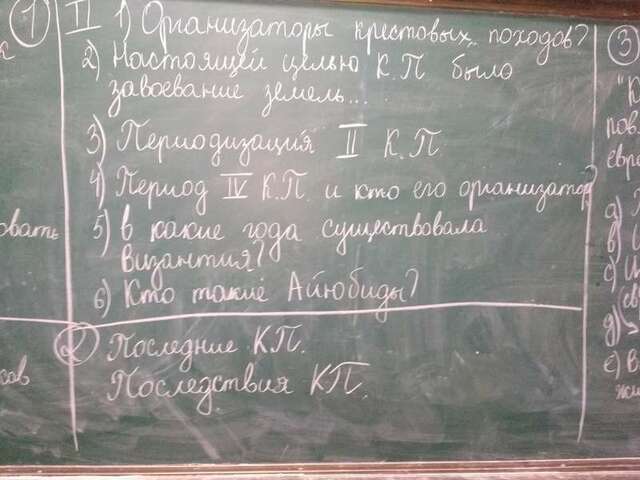 1
II 1) Организаторы крестовых походов?
2) Настоящей целью К.П было
завоевание земель...
3) Периодизация II К.П.
4) Период IV К.П. и кто его организатор?
5) В какие года существовала
Византия?
6) Кто такие Айюбиды?
2 Последние КП.
Последствия КП.
овать
3
пов
евре
а)
в)
с)
д)
е) В